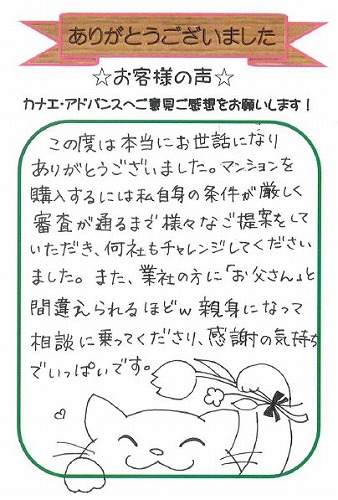 ありがとうございました
☆お客様の声☆
カナエ・アドバンスへご意見ご感想をお願いします！
この度は本当にお世話になり
ありがとうございました。マンションを
購入するには私自身の条件が厳しく
審査が通るまで様々なご提案をして
いただき、何社もチャレンジしてください
ました。また、業社の方に「お父さん」と
間違えられるほどw 親身になって
相談に乗ってくださり、感謝の気持ち
でいっぱいです。